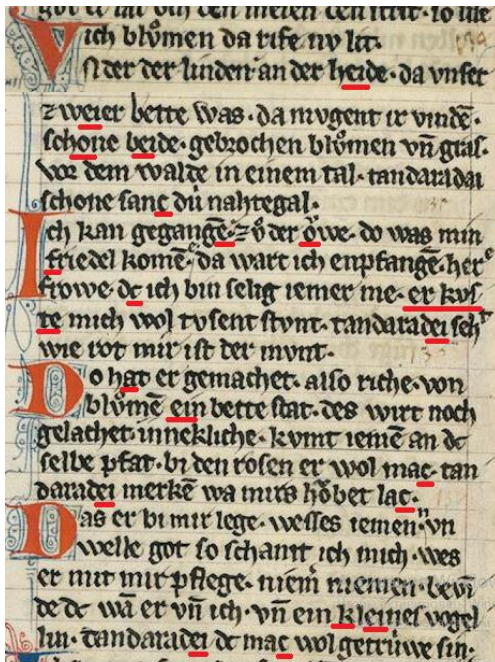 got er lat den meien den ſtrit. ſo liſe
ich blv̊men da rife nv lit.
Vnder der linden an der heide. da vnſer
zweier bette was. da mvgent ir vinden.
ſchone beide. gebrochen blv̊men vn̄ gras.
vor dem walde in einem tal. tandaradai
ſchone ſanc dú nahtegal.
Ich kan gegangē. zv̊ der ǒwe. do was min
friedel komē ͤ. da wart ich enpfangē. herͤ
frowe dc ich bin ſelig iemer me. er kvſ
te mich wol tvſent ſtvnt. tandaradei ſehͭ
wie rot mir iſt der mvnt.
Do hat er gemachet. alſo riche. von
blv̊mē ein bette ſtat. des wirt noch
gelachet. innekliche. kvmt iemē an dc
ſelbe pfat. bi den roſen er wol mac. tan
daradei merkē wa mirs hǒbet lac.
Das er bi mir lege. weſſes iemen. vn
welle got ſo ſchamt ich mich. wes
er mit mir pflege. niemͬ niemen bevī
de dc wā er vn̄ ich. vn̄ ein kleines vogel
lin. tandaradei dc mac wol getrúwe ſin.